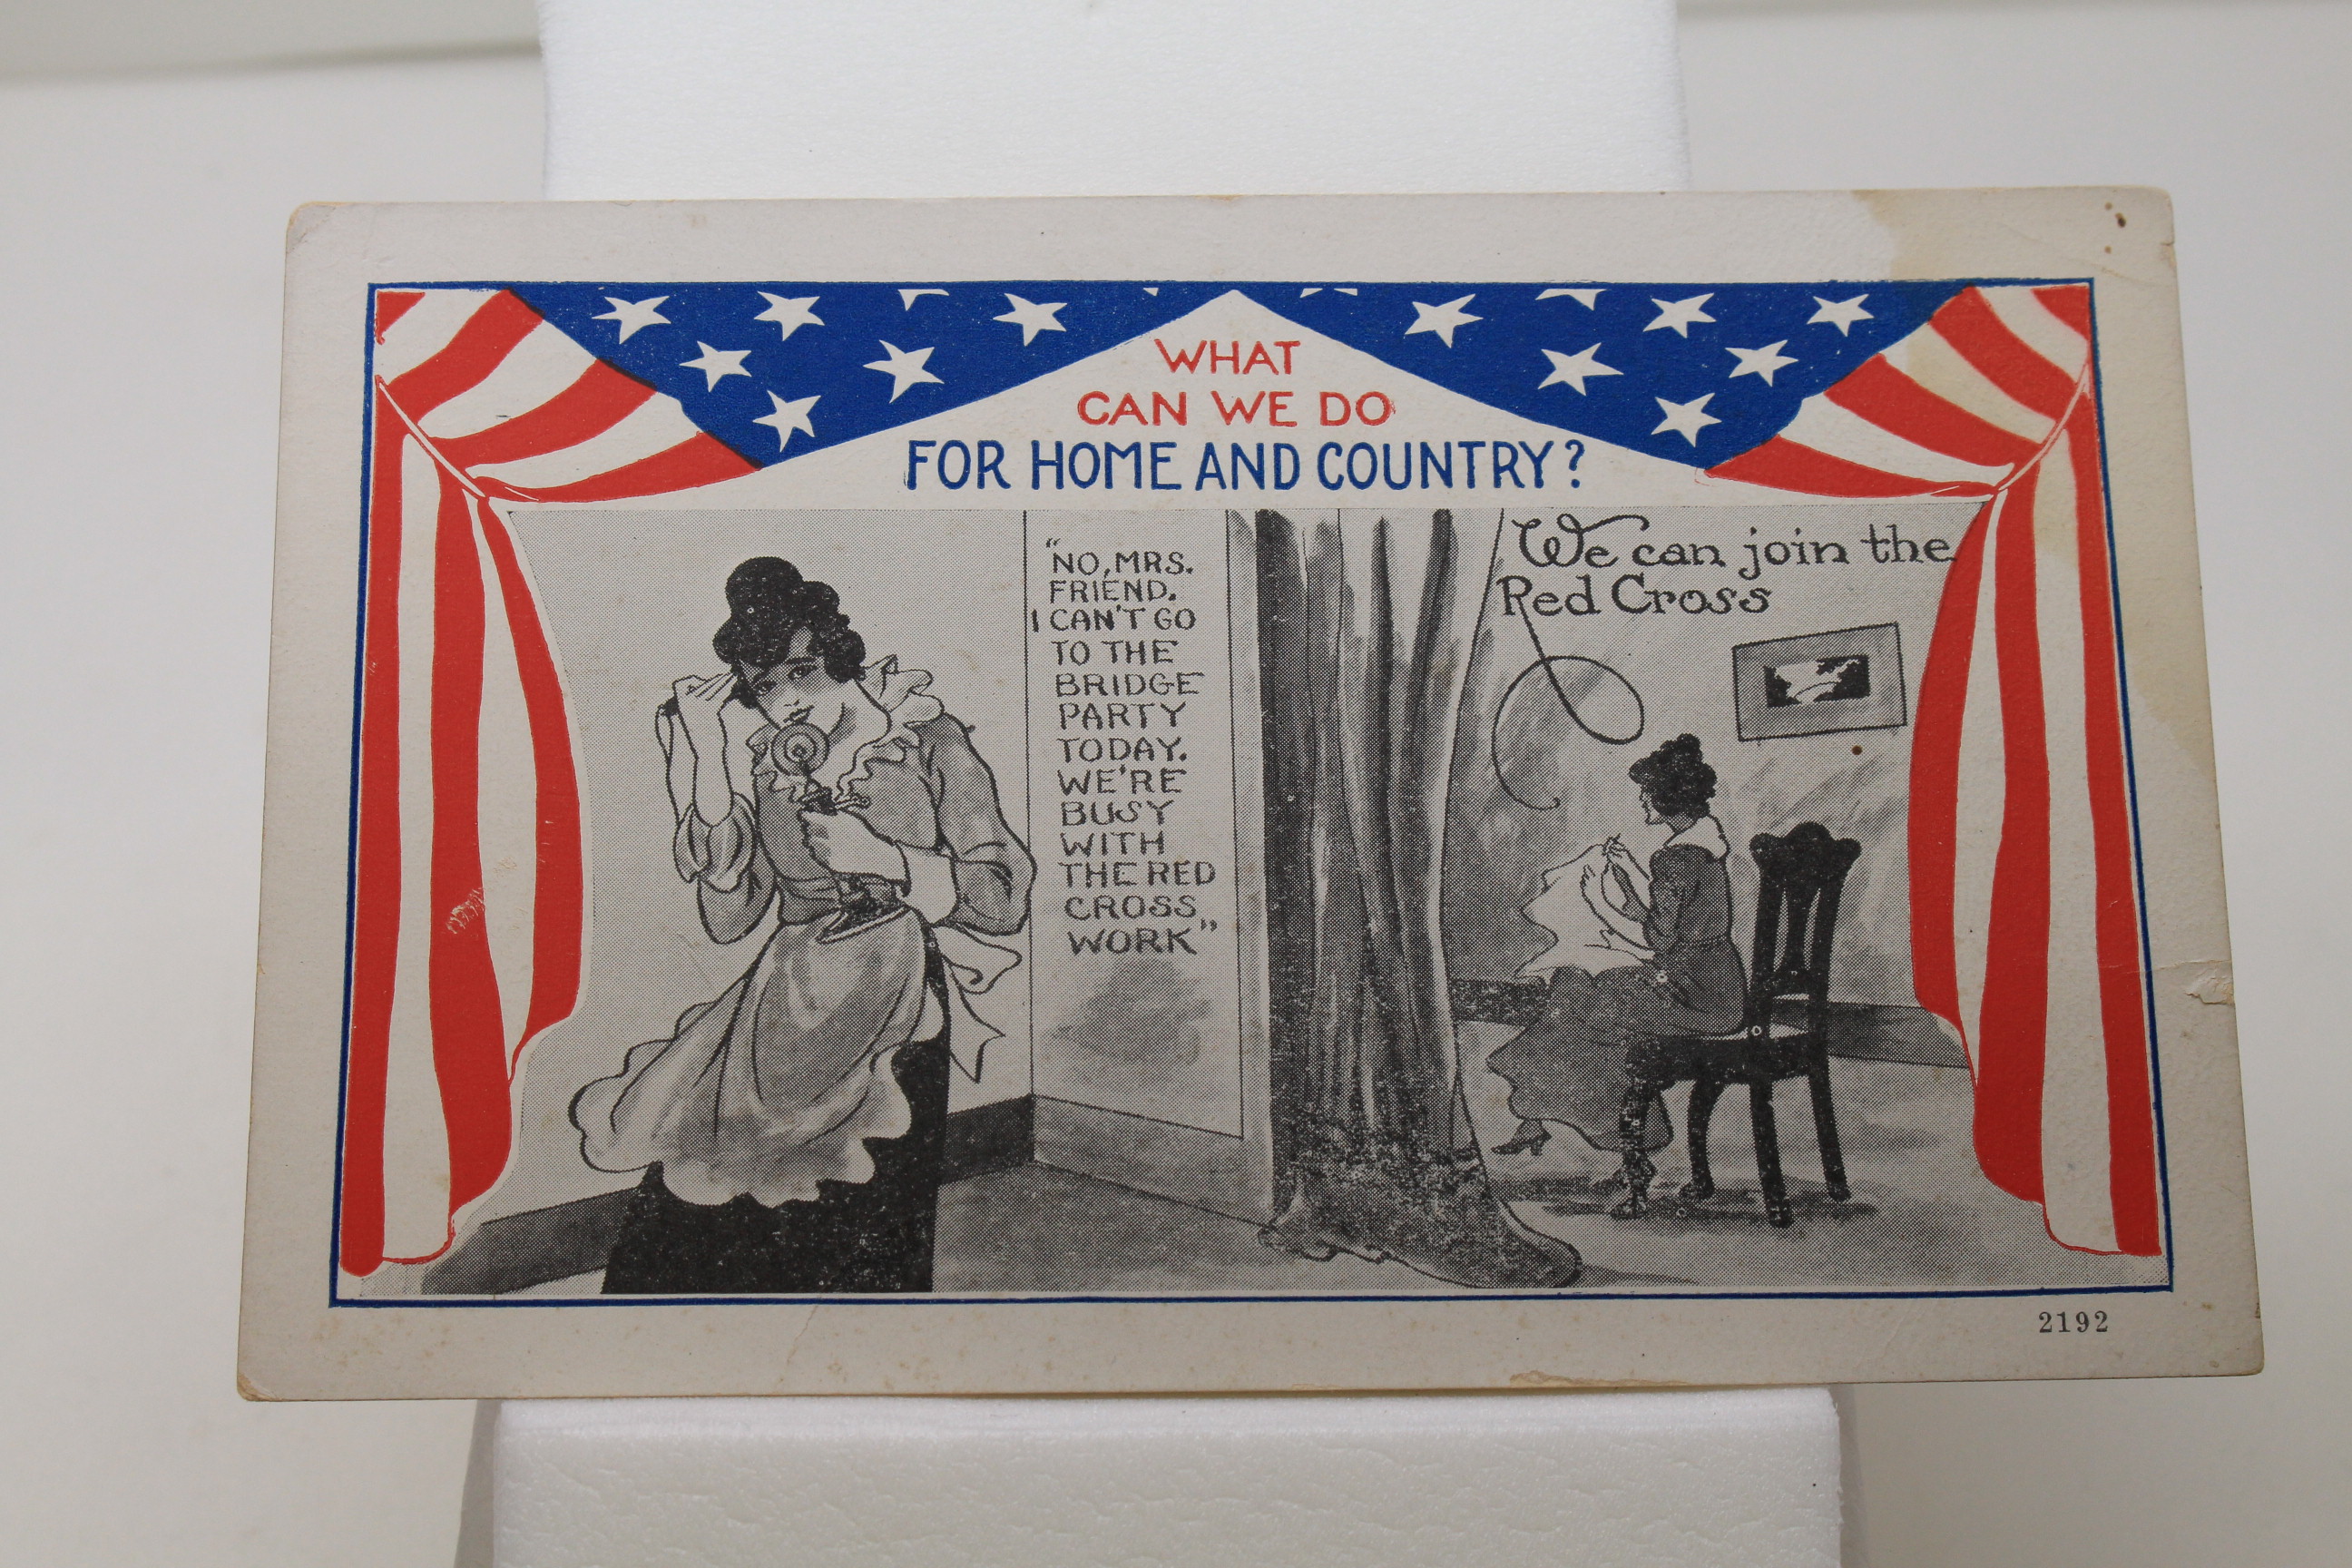 WHAT
CAN WE DO
FOR HOME AND COUNTRY?
"NO, MRS.
FRIEND.
I CAN'T GO
TO THE
BRIDGE
PARTY
TODAY.
WE'RE
BUSY
WITH
THE RED
CROSS
WORK"
We can join the
Red Cross
2192